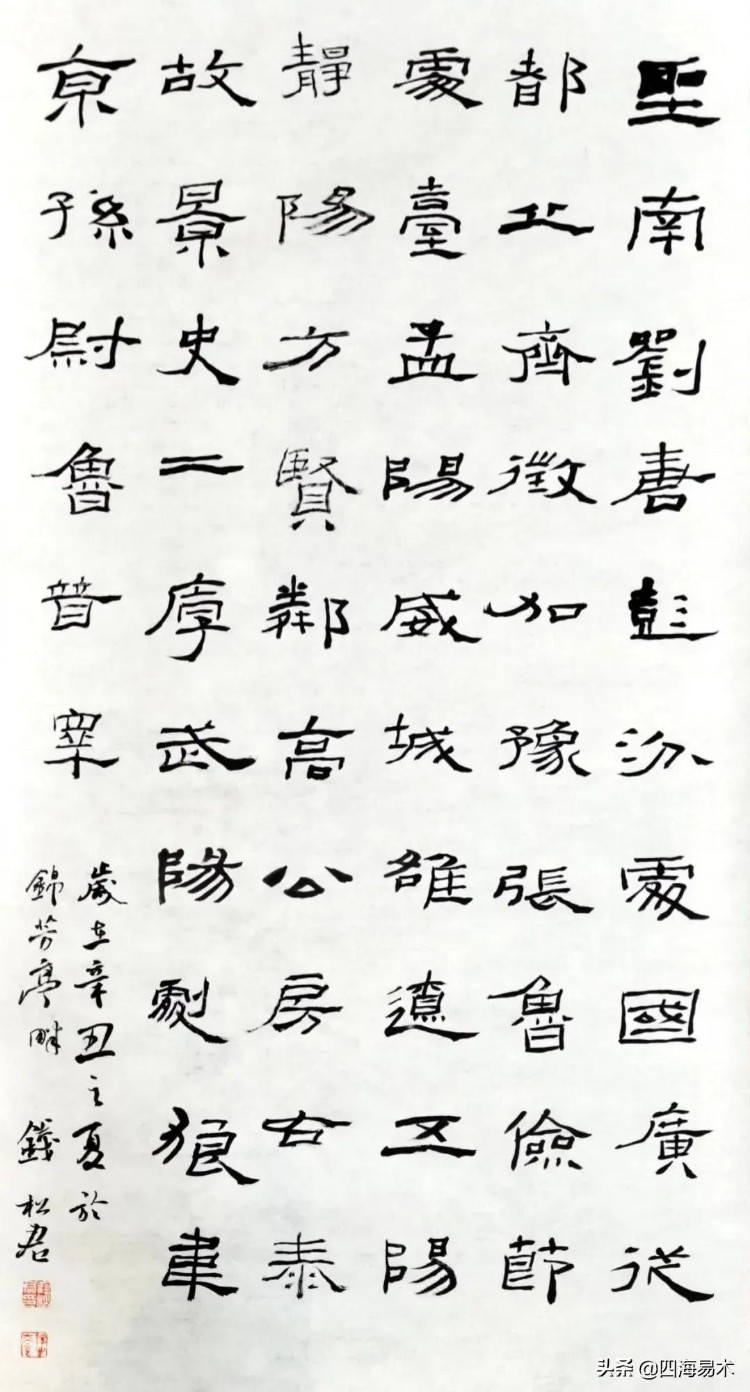 聖南劉彭汾處國廣從
都齊徵加豫張魯儉節
處臺孟陽威城雒遺五陽
靜陽方賢鄰高公房古泰
故景史二武陽劇狼
京孫尉魯普
歲在辛丑之夏於
錦芳亭畔 錢松君
头条 @四海易木